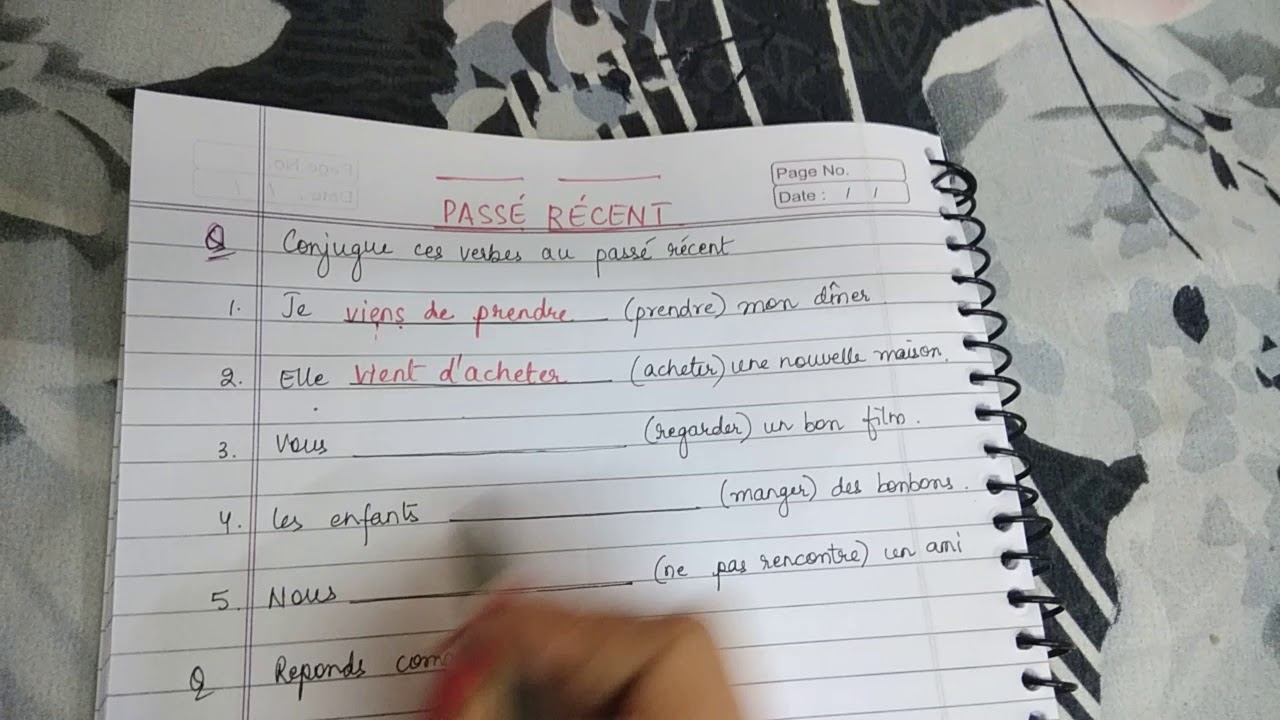 Page No.
Date : / /
PASSÉ RÉCENT
Q Conjugue ces verbes au passé récent
1. Je viens de prendre (prendre) mon dîner
2. Elle vient d'acheter (acheter) une nouvelle maison.
3. Vous (regarder) un bon film.
4. Les enfants (manger) des bonbons.
5. Nous (ne pas rencontre) un ami
Q Reponds